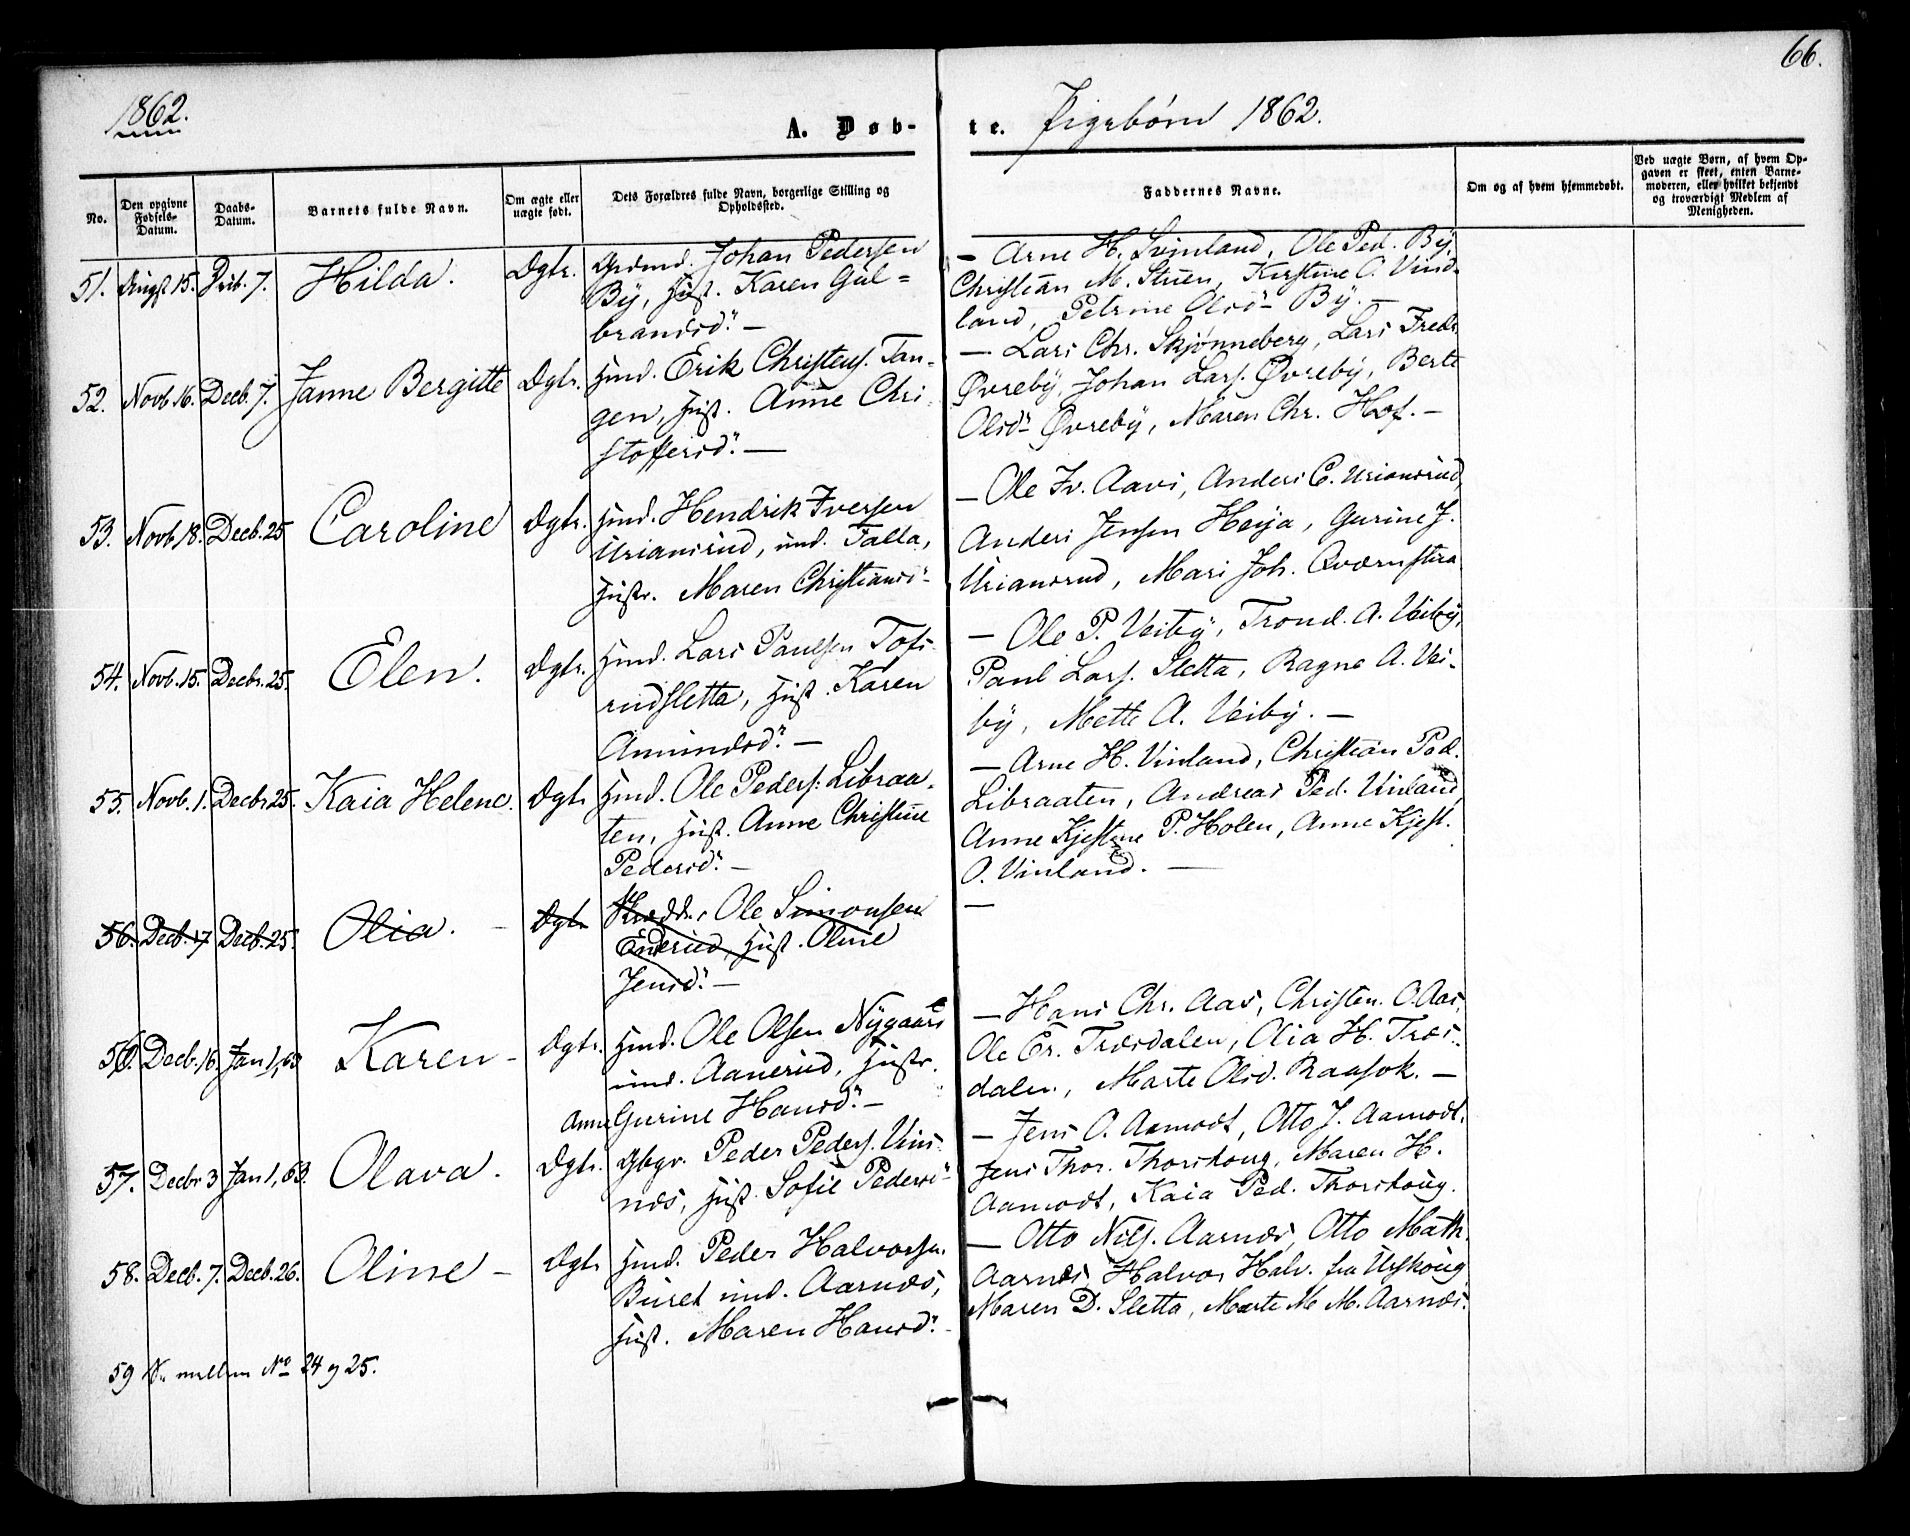 66.
1862.
A. Døb-
te.
Pigebørn 1862.
No.
Den opgivne Fødsels-Datum.
Daabs-Datum.
Barnets fulde Navn.
Om ægte eller uægte født.
Dets Forældres fulde Navn, borgerlige Stilling og Opholdssted.
Faddernes Navne.
Om og af hvem hjemmedøbt.
Ved uægte Børn, af hvem Opgaven er skeet, enten Barnemoderen, eller hvilket bekjendt og troværdigt Medlem af Menigheden.
51. Augst 15. 7. Hilda. Dgtr. Grdmd. Johan Pedersen
By, Hust. Karen Gul-
brandsd. —
— Arne H. Svinland, Ole Ped. By,
Christian M. Stuen, Kirstine O. Vind-
land, Petrine Olsd. By. —
52. Novb 16. Decb. 7. Janne Bergitte Dgtr. Hmd. Erik Christens. Tan-
gen, Hust. Anne Chri-
stoffersd. —
— Lars Chr. Skjønneberg, Lars Fredr.
Øvreby, Johan Lars. Øvreby, Berte
Olsd. Øvreby, Maren Chr. Hof. —
53. Novb 18. Decb. 25 Caroline Dgtr. Hmd. Hendrik Iversen
Uriansrud, und. Falla,
Hustr. Maren Christiansd.
— Ole Iv. Aavs, Anders C. Uriansrud,
Anders Jensen Heija, Gurine J.
Uriansrud, Mari Joh.
54. Novb. 15. Decbr. 25. Elen. Dgtr. Hmd. Lars Paulsen Tofs-
rudsletta, Hust. Karen
Amundsd. —
— Ole P. Veiby, Trond. A. Veiby,
Paul Lars. Sletta, Ragne A. Vei-
by, Mette A. Veiby. —
55. Novb. 1. Decbr 25. Kaia Helene. Dgtr Hmd. Ole Peders. Libraa-
ten, Hust. Anne Christine
Pedersd. —
— Arne H. Vinland, Christian Ped.
Libraaten, Andreas Ped. Vinland,
Anne Kjestine P. Holen, Anne Kjest.
O. Vinland. —
56. Decb. 17 Decb. 25. Olia. — Dgtr Skrædder Ole Simonsen
Enderud, Hust. Oline
Jensd. —
—
56. Decb. 16. Jan 1, 63 Karen — Dgtr. Hmd. Ole Olsen Nygaard
und. Aanerud, Hustr.
Anne Gurine Hansd. —
— Hans Chr. Aas, Christen. O. Aas,
Ole Er. Træsdalen, Olia H. Træs-
dalen, Marte Olsd. Raasok. —
57. Decbr 3 Jan 1, 63. Olava. Dgtr. Gbgr. Peder Peders. Vins-
næs, Hust. Sofie Pedersd.
— Jens O. Aamodt, Otto J. Aamodt,
Jens Thor. Thorskoug, Maren H.
Aamodt, Kaia Ped. Thorskoug.
58. Decb. 7. Decb. 26. Oline — Dgtr Hmd. Peder Halvorsen
Buret und. Aarnæs,
Hust. Maren Hansd.
— Otto Nils. Aarnæs, Otto Math.
Aarnæs, Halvor Halv. fra Urskoug
Maren D. Sletta, Marte M. M. Aarnæs.
59 mellem No 24 og 25.